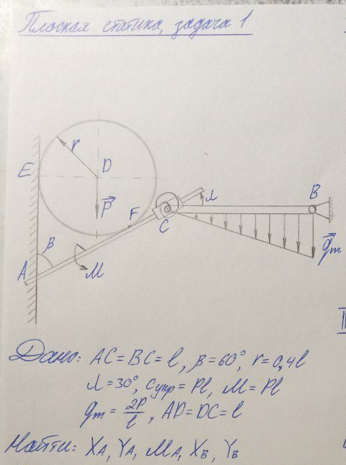 Плоская статика, задача 1
r
D
E
P
F
λ
C
B
qm
β
A
M
Дано: AC=BC=l, β=60°, r=0,4l
λ=30°, Cупр=Pl, M=Pl
qm=2P/l, AD=DC=l
Найти: XA, YA, MA, XB, YB